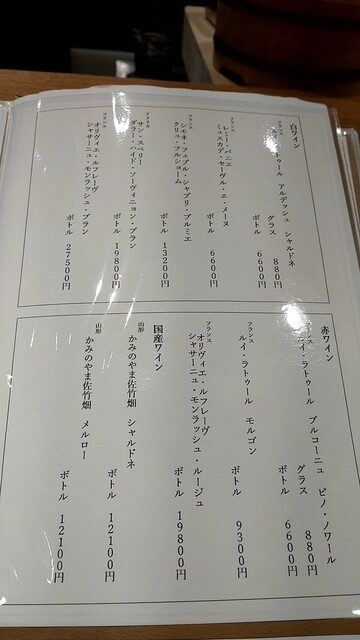 白ワイン
フランス
ルイ・ラトゥール アルデッシュ シャルドネ
グラス 880円
ボトル 6600円
フランス
レミー・パニエ
ミュスカデ・セーヴル・エ・メーヌ
ボトル 6600円
フランス
シモネ・フェブル・シャブリ・プルミエ
クリュ・フルショーム
ボトル 13200円
アメリカ
サン・スペリー
ダラー・ハイド・ソーヴィニョン・ブラン
ボトル 19800円
フランス
オリヴィエ・ルフレーヴ
シャサーニュ・モンラッシュ・ブラン
ボトル 27500円
赤ワイン
フランス
ルイ・ラトゥール ブルゴーニュ ピノ・ノワール
グラス 880円
ボトル 6600円
フランス
ルイ・ラトゥール モルゴン
ボトル 9300円
フランス
オリヴィエ・ルフレーヴ
シャサーニュ・モンラッシュ・ルージュ
ボトル 19800円
国産ワイン
山形
かみのやま佐竹畑 シャルドネ
ボトル 12100円
山形
かみのやま佐竹畑 メルロー
ボトル 12100円